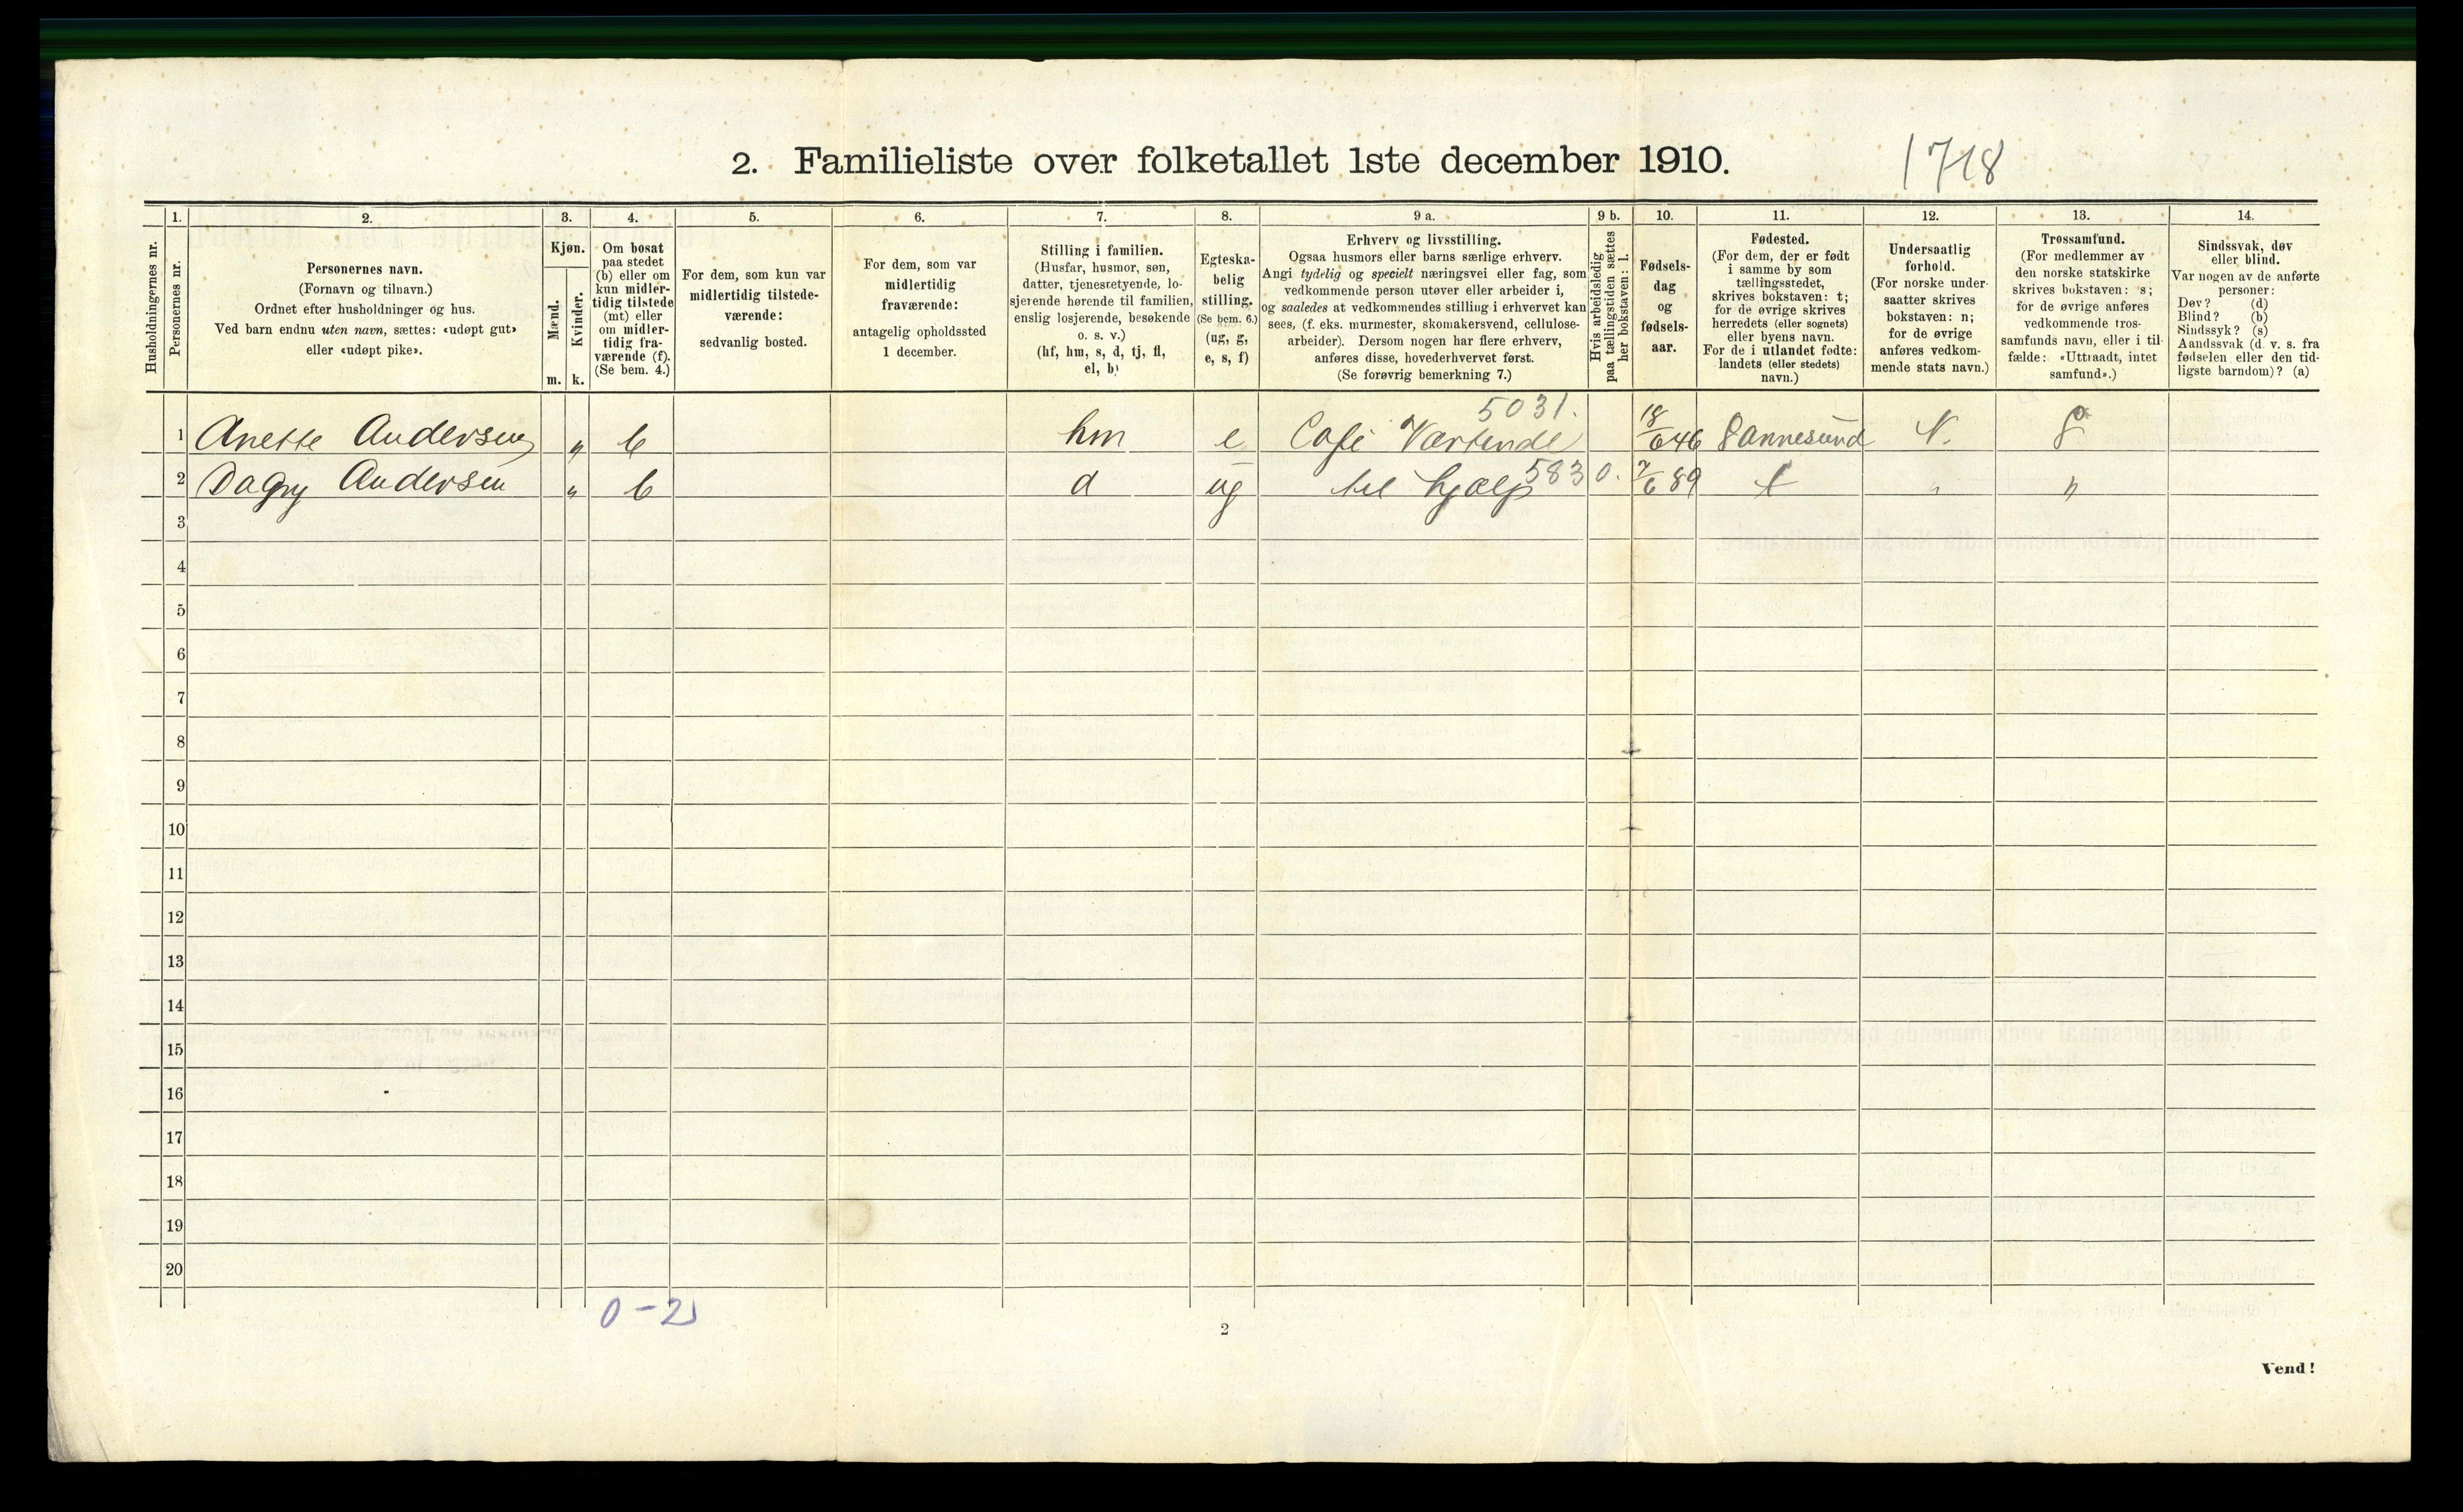 2. Familieliste over folketallet 1ste december 1910.
1718
Husholdningernes nr.
1.
Personernes nr.
2.
Personernes navn.
(Fornavn og tilnavn.)
Ordnet efter husholdninger og hus.
Ved barn endnu uten navn, sættes: «udøpt gut»
eller «udøpt pike».
3.
Kjøn.
Mænd.
m.
Kvinder.
k.
4.
Om bosat
paa stedet
(b) eller om
kun midler-
tidig tilstede
(mt) eller
om midler-
tidig fra-
værende (f).
(Se bem. 4.)
5.
For dem, som kun var
midlertidig tilstede-
værende:
sedvanlig bosted.
6.
For dem, som var
midlertidig
fraværende:
antagelig opholdssted
1 december.
7.
Stilling i familien.
(Husfar, husmor, søn,
datter, tjenestetyende, lo-
sjerende hørende til familien,
enslig losjerende, besøkende
o. s. v.)
(hf, hm, s, d, tj, fl,
el, b)
8.
Egteska-
belig
stilling.
(Se bem. 6.)
(ug, g,
e, s, f)
9 a.
Erhverv og livsstilling.
Ogsaa husmors eller barns særlige erhverv.
Angi tydelig og specielt næringsvei eller fag, som
vedkommende person utøver eller arbeider i,
og saaledes at vedkommendes stilling i erhvervet kan
sees, (f. eks. murmester, skomakersvend, cellulose-
arbeider). Dersom nogen har flere erhverv,
anføres disse, hovederhvervet først.
(Se forøvrig bemerkning 7.)
9 b.
Hvis arbeidsledig
paa tællingstiden sættes
her bokstaven: l.
10.
Fødsels-
dag
og
fødsels-
aar.
11.
Fødested.
(For dem, der er født
i samme by som
tællingsstedet,
skrives bokstaven: t;
for de øvrige skrives
herredets (eller sognets)
eller byens navn.
For de i utlandet fødte:
landets (eller stedets)
navn.)
12.
Undersaatlig
forhold.
(For norske under-
saatter skrives
bokstaven: n;
for de øvrige
anføres vedkom-
mende stats navn.)
13.
Trossamfund.
(For medlemmer av
den norske statskirke
skrives bokstaven: s;
for de øvrige anføres
vedkommende tros-
samfunds navn, eller i til-
fælde: «Uttraadt, intet
samfund».)
14.
Sindssvak, døv
eller blind.
Var nogen av de anførte
personer:
Døv? (d)
Blind? (b)
Sindssyk? (s)
Aandssvak (d. v. s. fra
fødselen eller den tid-
ligste barndom)? (a)
5031.
1 Anette Andersen " b hm e Café Værtende 18/6 46 Sannesund N.
2 Dagny Andersen " b d ug til hjælp 5830. 7/6 89 t " "
3
4
5
6
7
8
9
10
11
12
13
14
15
16
17
18
19
20
0-2
2
Vend!